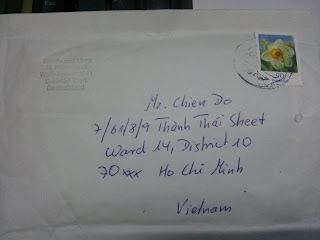 Deutschland
90
Mr. Chien Do
7/61/8/9 Thành Thái Sheet
Ward 14, District 10
70xxx Ho Chi Minh
Vietnam